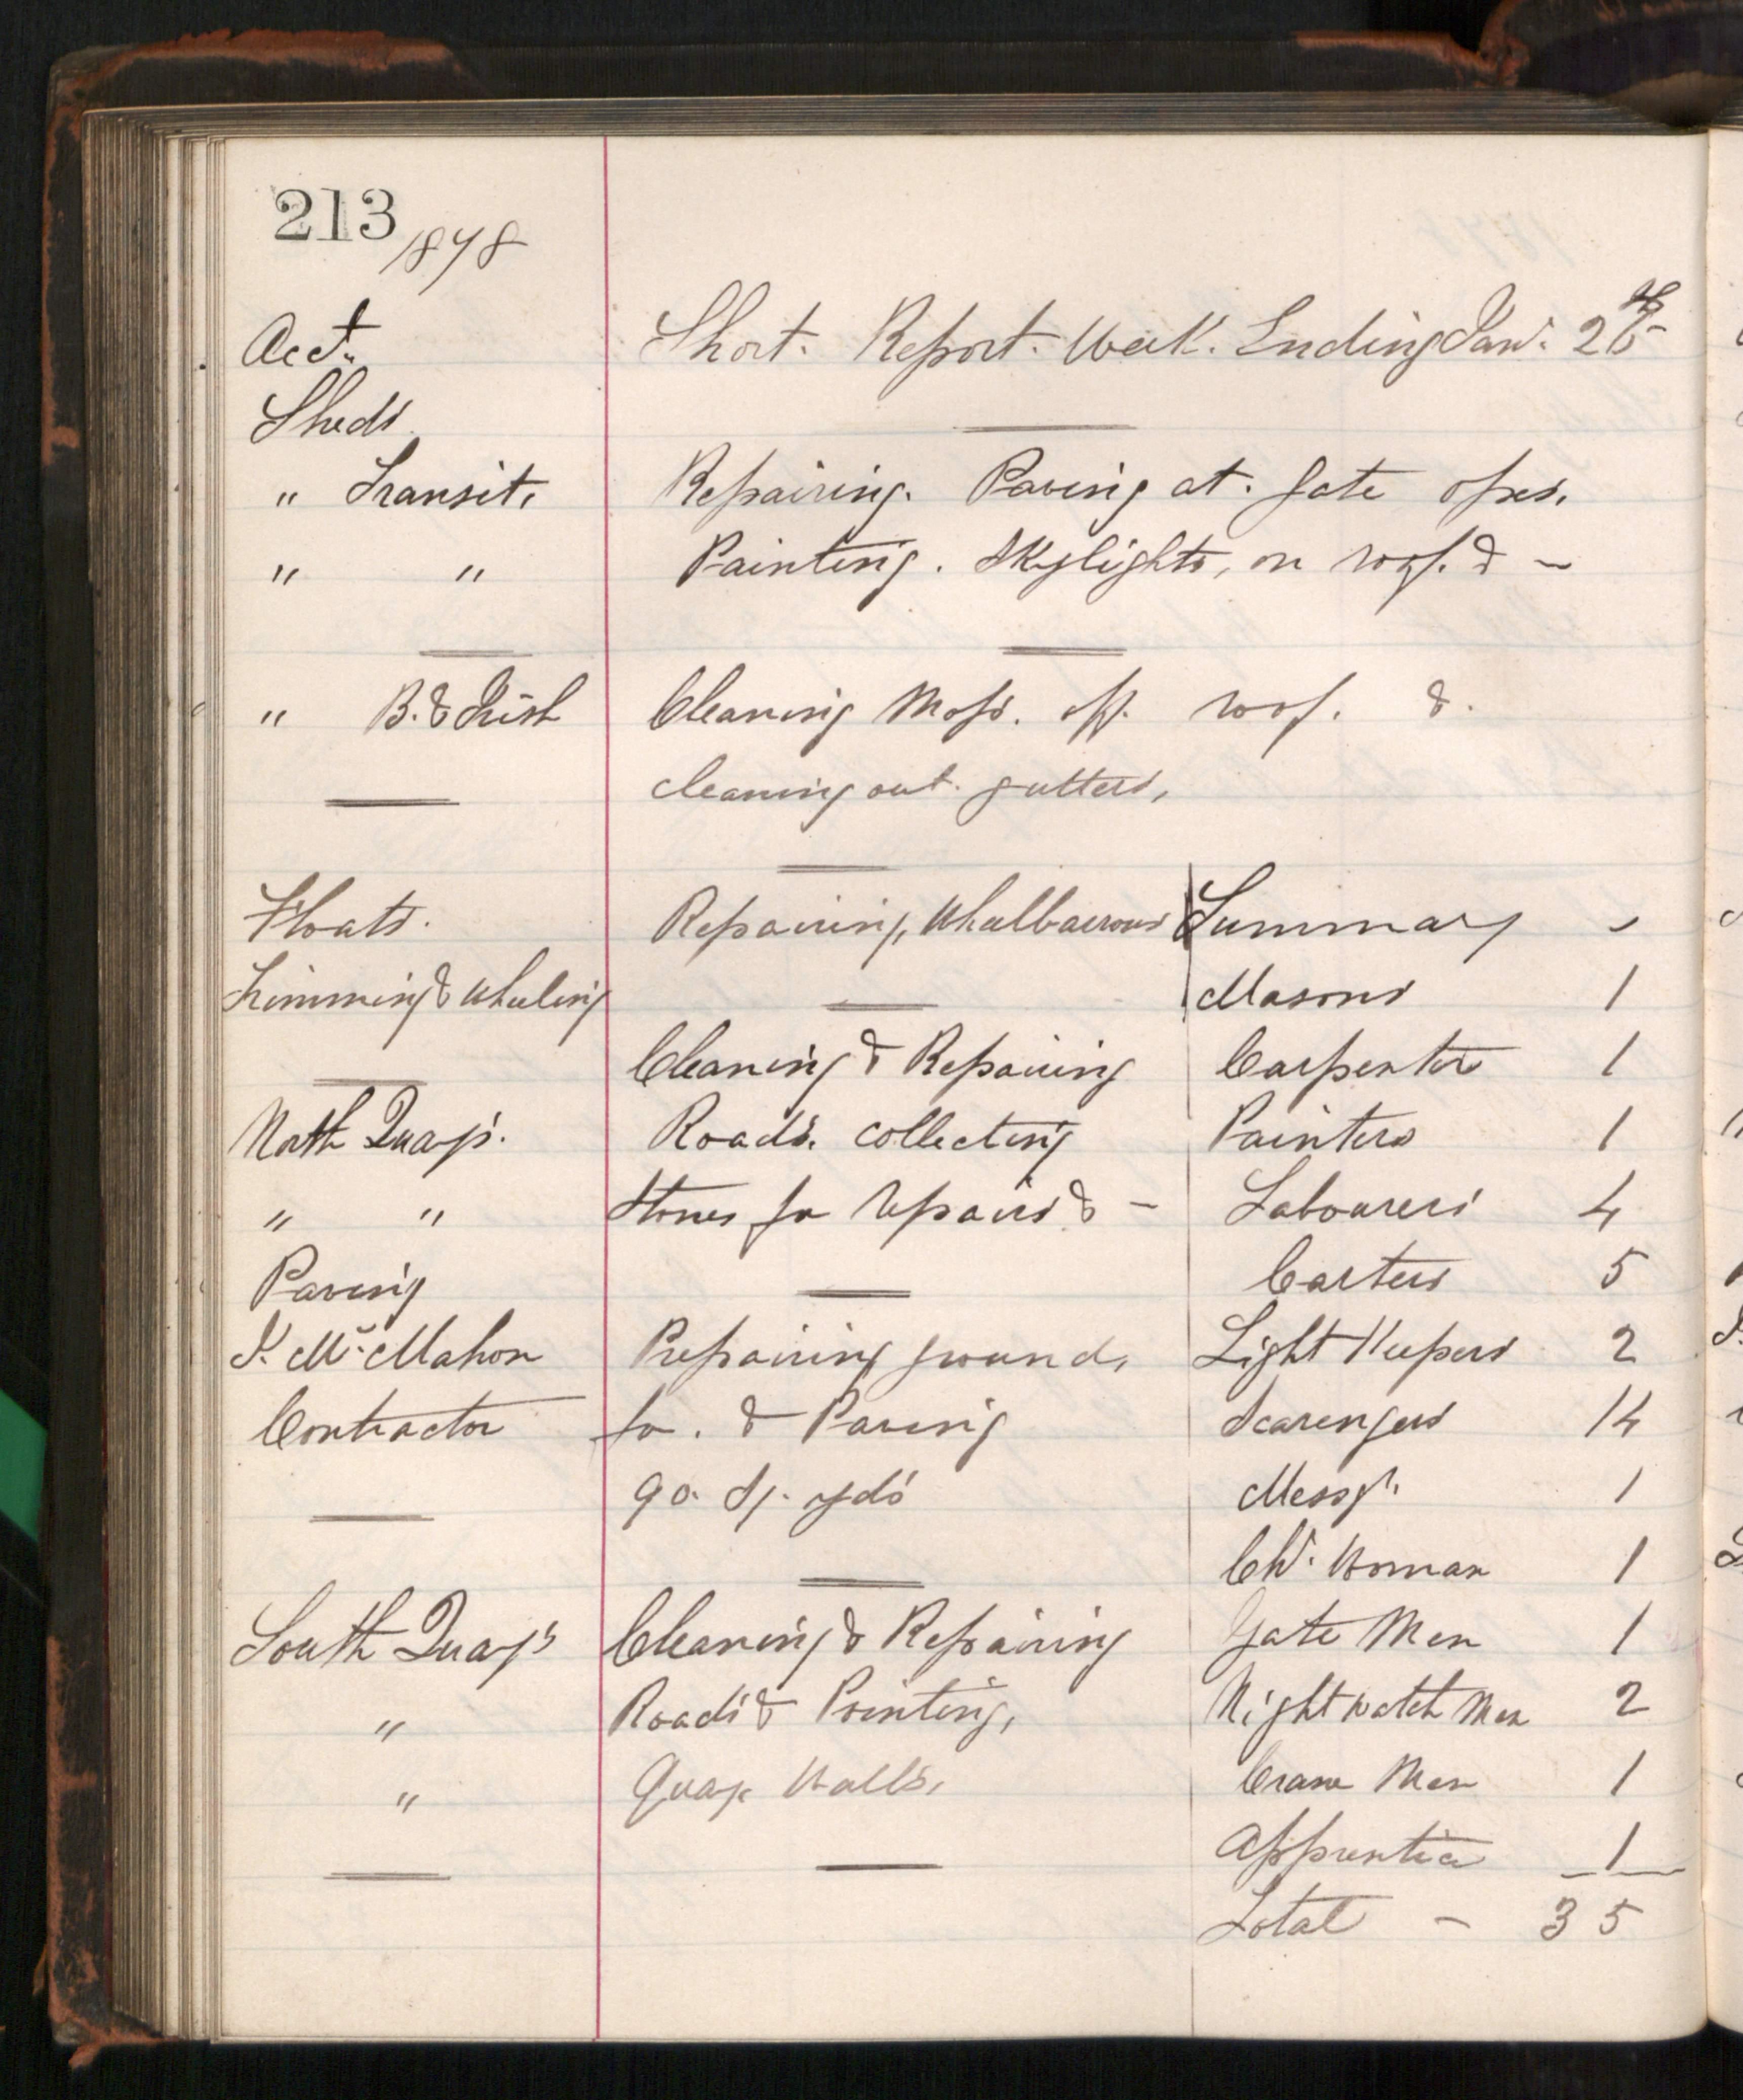 213 1878
Acct. Short. Report. Week. Ending Jany. 26th
Sheds
" Transit. Repairing. Paving at. gate opes.
" " Painting. Skylights, on roof. & -
" B. & Irish Cleaning Moss. off. roof. &.
cleaning out. gutters,
Floats. Repairing, Wheelbarrows
Trimming & Wheeling
Cleaning & Repairing
North Quays. Roads. collecting
" " Stones for repairs & -
Paving
J. McMahon Preparing ground,
Contractor for. & Paving
90. Sq. yds
South Quays Cleaning & Repairing
" Roads & Pointing,
" Quay Walls,
Summary
Masons 1
Carpenters 1
Painters 1
Labourers 4
Carters 5
Light Keepers 2
Scavengers 14
Messgr. 1
Ch. Woman 1
Gate Men 1
Night watch Men 2
Crane Men 1
Apprentice 1
Total - 35